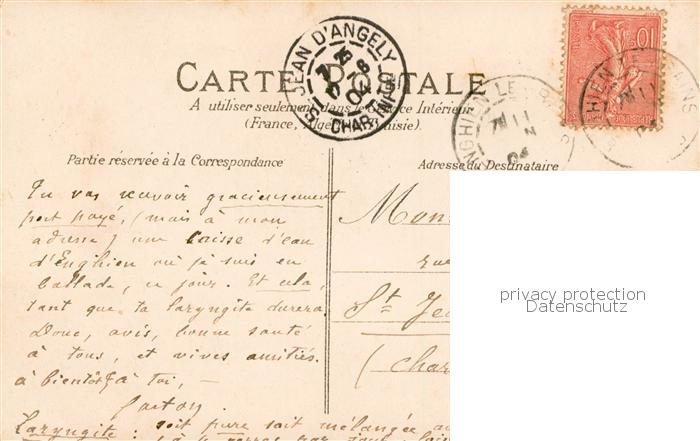 CARTE POSTALE
A utiliser seulement dans le Service Intérieur
(France, Algérie et Tunisie).
ST JEAN D'ANGELY
CHAR
10
ENGHIEN LES
11
Partie réservée à la Correspondance
Adresse du Destinataire
Tu vas recevoir gracieusement
port payé, (mais à mon
adresse) une caisse d'eau
d'Enghien où je suis en
ballade, ce jour. Et cela,
tant que ta laryngite durera.
Donc, avis, bonne santé
à tous, et vives amitiés.
à bientôt à toi, —
Gaston.
Laryngite : soit pure soit mélangée au
Mon
rue
St Jea
(Char
privacy protection
Datenschutz